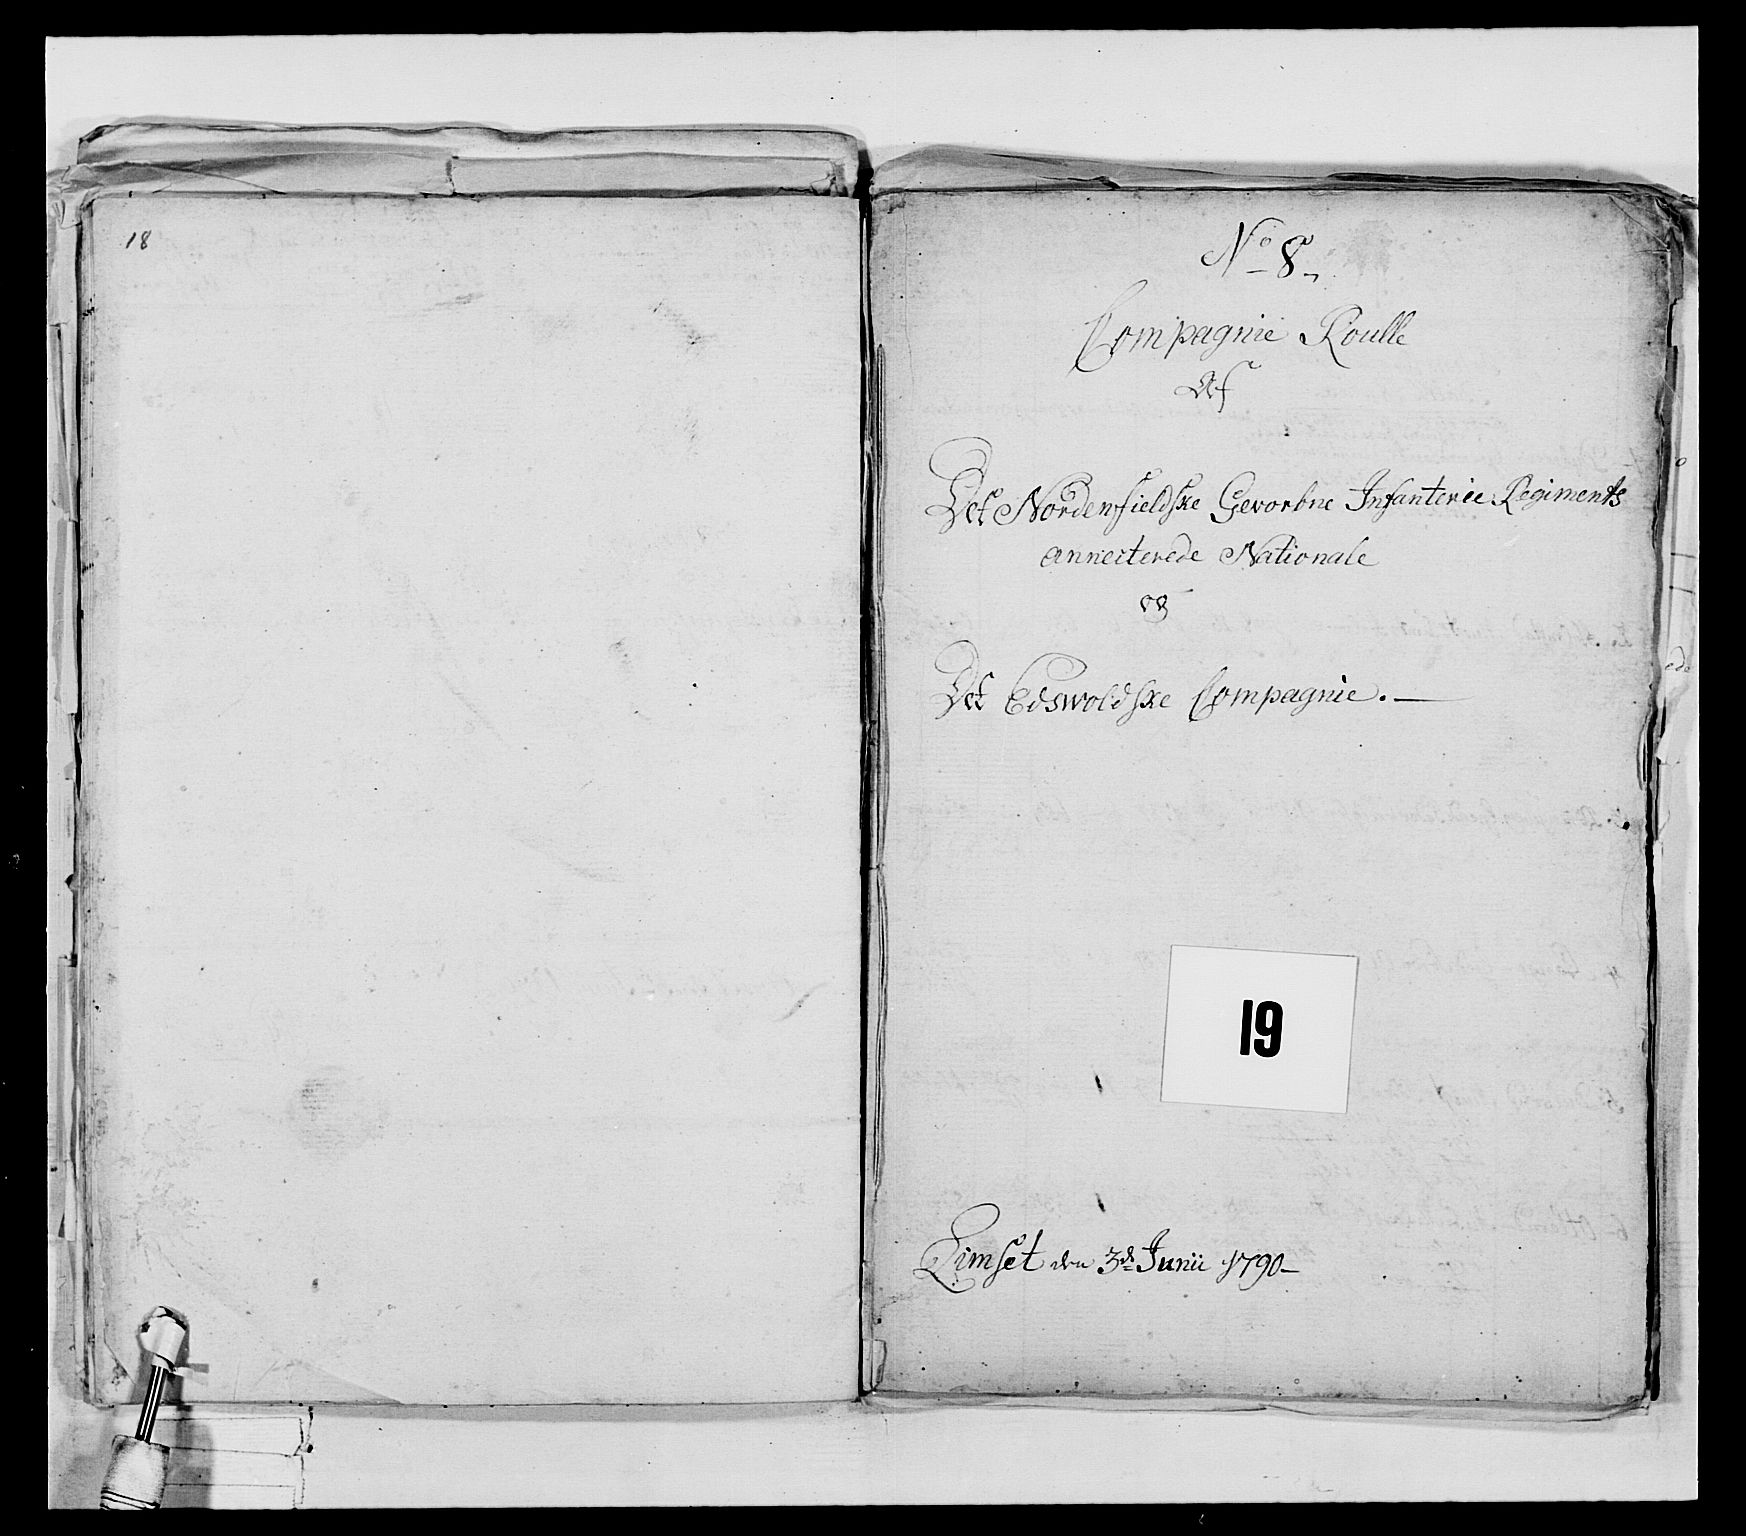 18
No 8,
Compagnie Roulle
Af
Det Nordenfieldske Gevorbne Infanterie Regiments
annecterede Nationale
og
Det Edswoldske Compagnie. —
19
Limset den 3de Junii 1790 —